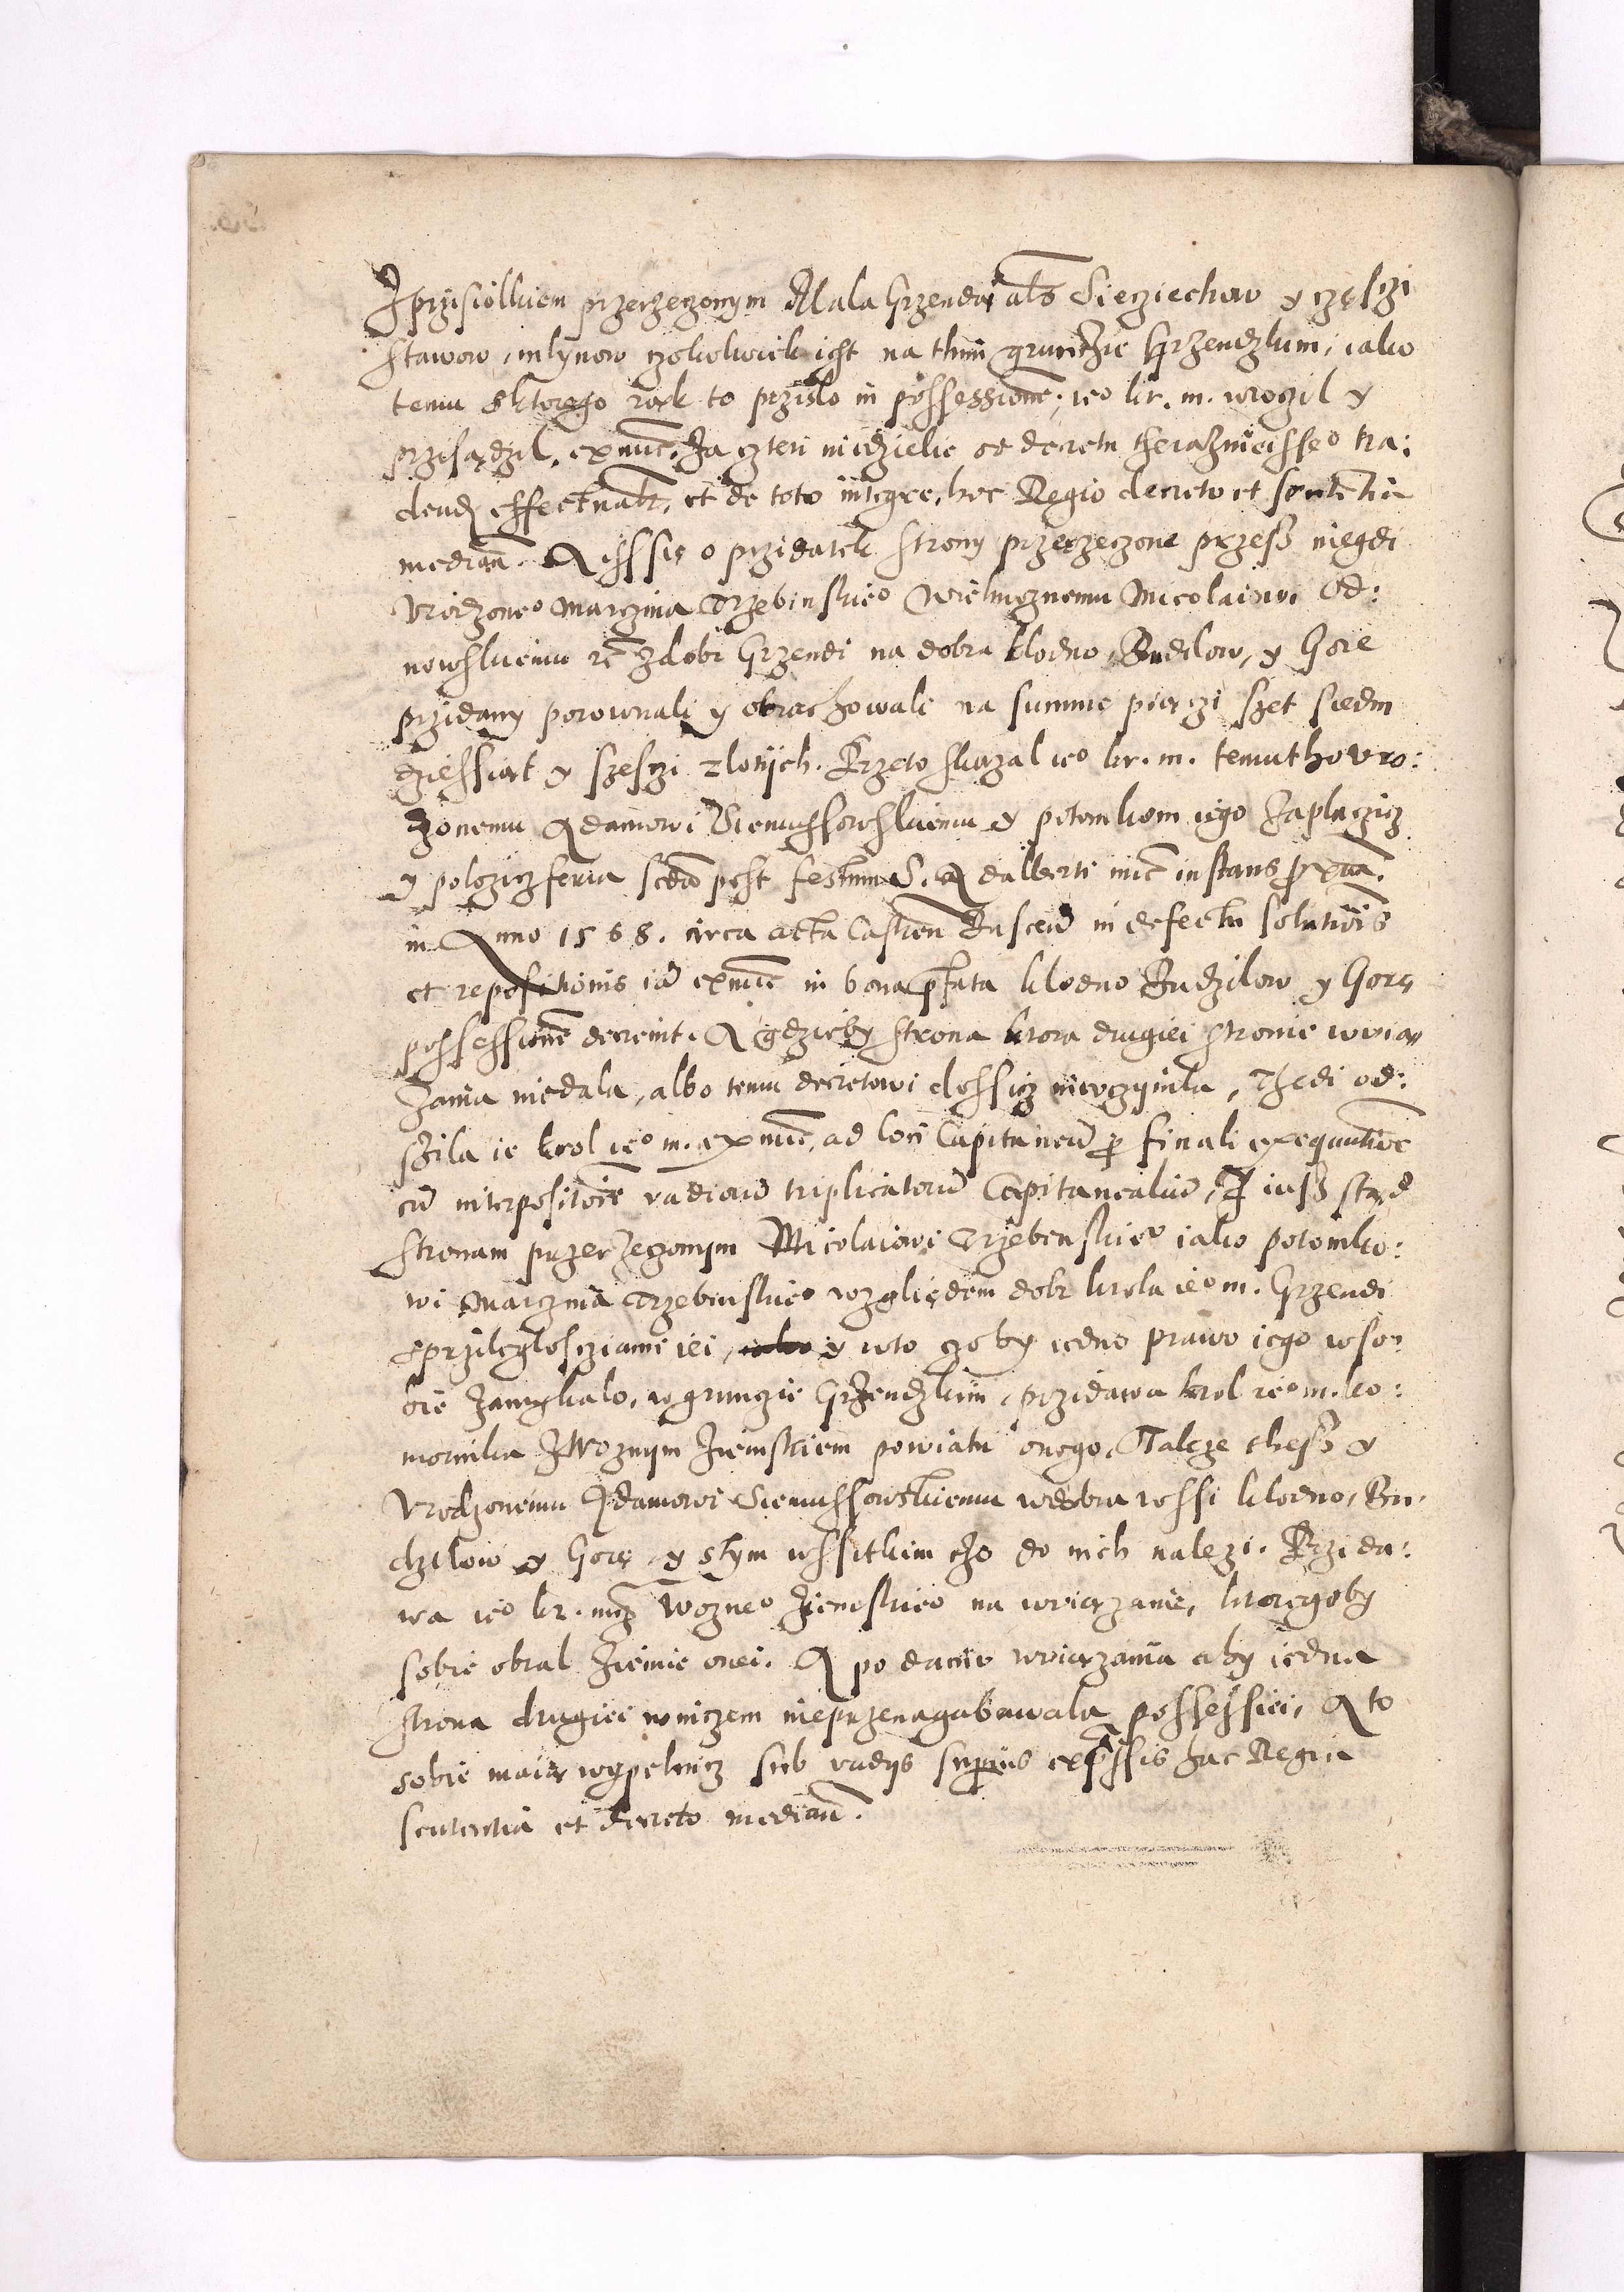 Z przisiolkiem przerzeczonym Mala Grzenda als Siecziechow y częsczi
stawow, mlynow czokolwiek iest na thim gruntzie Grzendzkim, iako
temu sktorego rąk to przislo in possessionē, ieo kr. m. wroczil y
przisądzil, ex nūc, za czteri niedzielie od decretu therazmieisseo tra:
dend effectuabr, et de toto integre, hoc Regio decreto et sententia
median. A isssię o przidatek strony przerzeczone przesz niegdi
Vrodzoneo Marczina Trzebinskieo Wielmoznemu Nicolaiowi Od:
nowskiemu zdobr Grzendi na dobra Klodno, Budzilow, y Gore
przidany porownali y obrachowali na summe pięczi szet siedm
dziessiąt y szesczi zlotijch. Przeto skazal ieo kr. m. temutho vro:
dzonemu Adamowi Siemussowskiemu y potomkom iego zaplaczicz
y polozicz feria scda post festum S. Adalberti nūc instans proxia.
in Anno 1568. circa acta Castren Buscen in defectu solutiōis
et repositionis iā ex nūc in bona pfata Klodno Budzilow y Gorę
possessionē decreuit. A gdzieby strona ktora drugiei stronie wwią
zania niedala, albo temu decretowi dossicz nieuczynila, Thedi od:
szila ie krol ieo m. ex nūc, ad loci Capitaneū p finali exequutiōe
cū interpositōie vadiorū triplicatorū Capitanealiū, I iusz
stronam przerzeczonym Micolaiowi Trzebinskieo iako potomko:
wi Marczina Trzebinskieo wzgliędem dobr krola ieo m. Grzendi
sprzileglosciziami iei, y wto czo by iedno prawo iego wso:
bie zamykalo, wgrunczie Grzendzkim, przidawa krol ieo m. ko:
mornika z Woznym ziemskiem powiatu onego, Takze thesz y
Vrodzonemu Adamowi Siemussowskiemu wdobra wssi Klodno, Bu:
dzilow y Gorę y stym wssitkim czo do nich nalezi. Przida:
wa ieo kr. m. Wozneo ziemskieo na wwiązanie, ktoregoby
sobie obral ziemie onei. A po daniu wwiązania aby iedna
strona drugiei wniczem nieprzenagabawala possessiei, A to
sobie maią wypelnicz sub vadijs superius expssis hac Regia
sententia et decreto median.